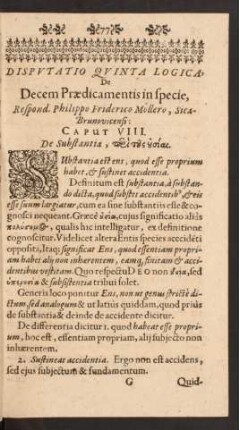 77
DISPVTATIO QVINTA LOGICA.
De
Decem Prædicamentis in specie,
Respond. Philippo Friderico Möllero, Sica-
Brunovicensi:
CAPUT VIII.
De Substantia, περὶ τῆς οὐσίας.
SUbstantia est ens, quod esse proprium
habet, & sustinet accidentia.
Definitum est substantia, à substan-
do dicta, quod substet accidentib⁹ & eis
esse suum largiatur, cum ea sine substantiis esse & co-
gnosci nequeant. Græcè οὐσία, cujus significatio aliàs
qualis hîc intelligatur, ex definitione
cognoscitur. Videlicet alterans entis species accidēti
oppositi, Itaq; significat Ens, quod essentiam propri-
am habet alij non inhærentem, eamq; sustinentem &
accidentibus vestitam. Quo respectu DEO non οὐσία, sed
& subsistentia tribui solet.
Generis loco ponitur Ens, non ut genus strictè di-
ctum, sed analogum & ut latius quiddam, quod priùs
de substantia & deinde de accidente dicitur.
De differentia dicitur 1. quod habeat esse propri-
um, hoc est, essentiam propriam, alij subjecto non
inhærentem.
2. Sustineat accidentia. Ergo non est accidens,
sed ejus subjectum & fundamentum.
G Quid-